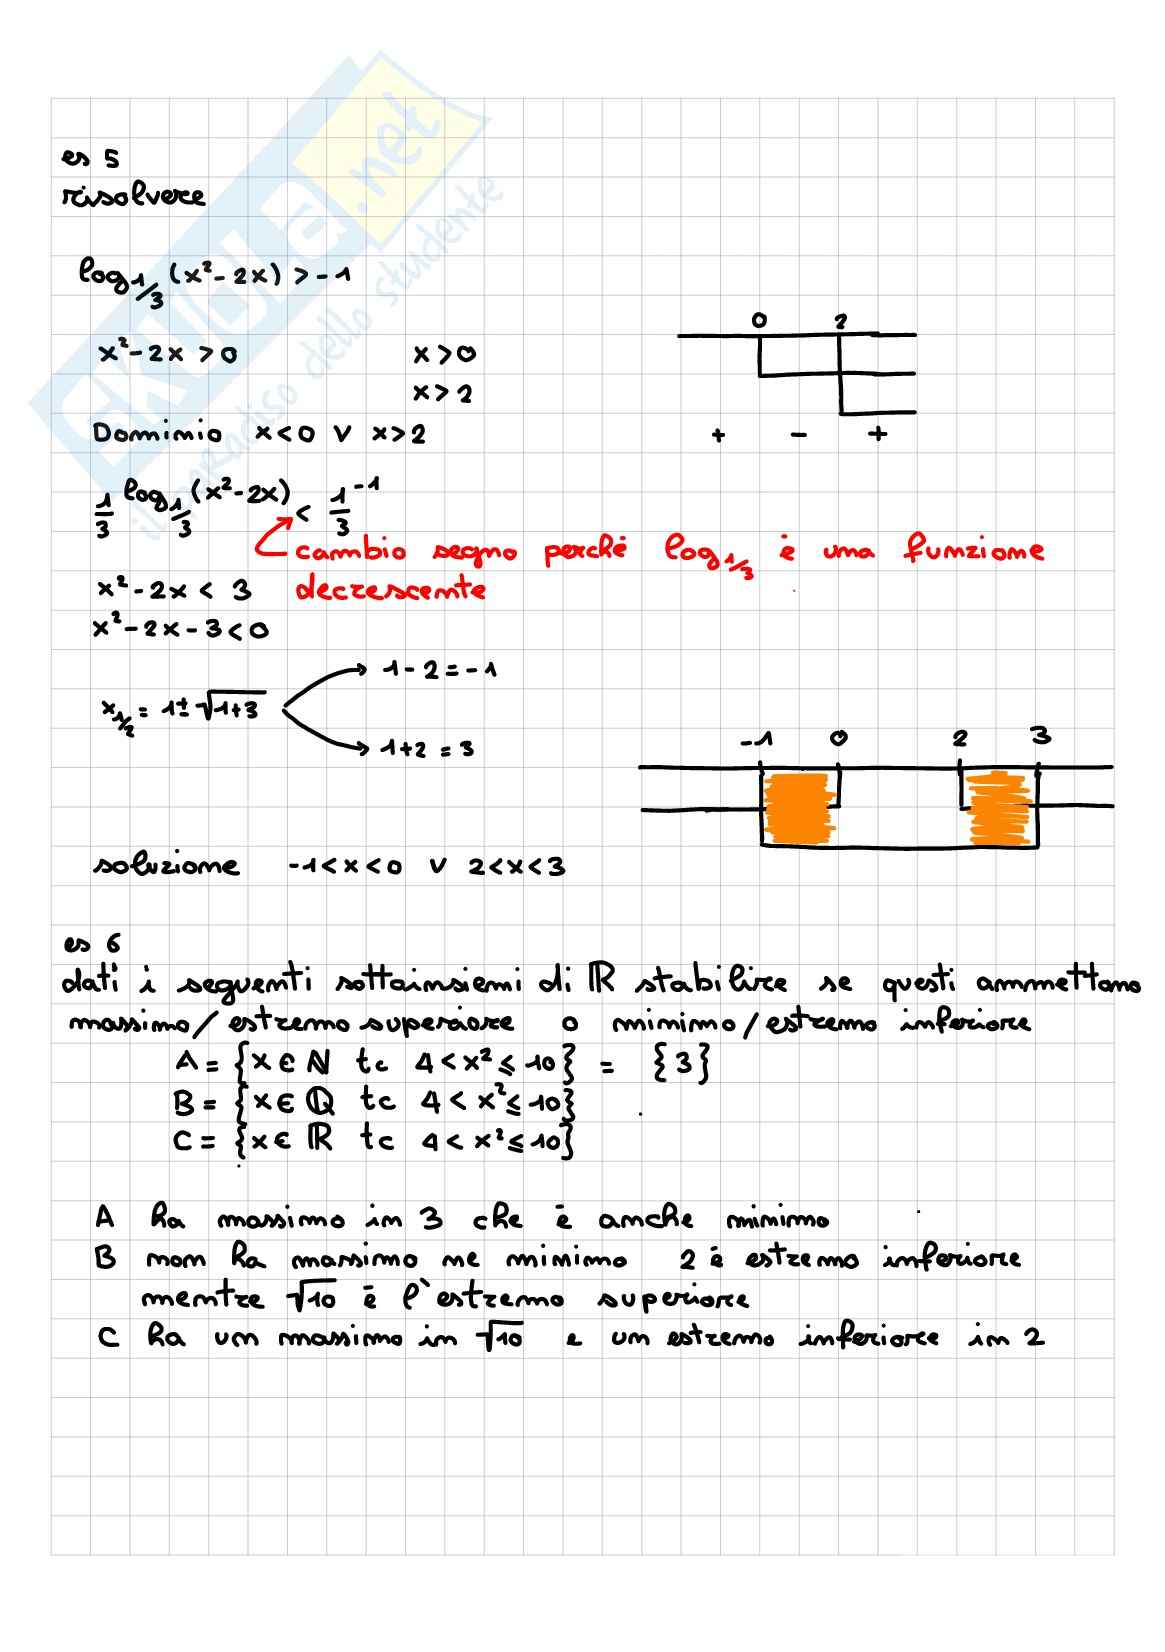 SKUOLA.net
il paradiso dello studente
es 5
risolvere
log1/3 (x²-2x) > -1
x²-2x > 0 x > 0
x > 2
Dominio x<0 ∨ x>2
0 2
+ - +
1/3 log1/3 (x²-2x) < 1/3 ⁻¹
cambio segno perché log1/3 è una funzione
decrescente
x²-2x < 3
x²-2x-3<0
x1/2 = 1±√1+3
1-2=-1
1+2=3
-1 0 2 3
soluzione -1<x<0 ∨ 2<x<3
es 6
dati i seguenti sottoinsiemi di ℝ stabilire se questi ammettono
massimo/estremo superiore o minimo/estremo inferiore
A = {x ∈ ℕ tc 4<x²≤10} = {3}
B = {x ∈ ℚ tc 4<x²≤10}
C = {x ∈ ℝ tc 4<x²≤10}
A ha massimo in 3 che è anche minimo
B non ha massimo ne minimo 2 è estremo inferiore
mentre √10 è l'estremo superiore
C ha un massimo in √10 e un estremo inferiore in 2